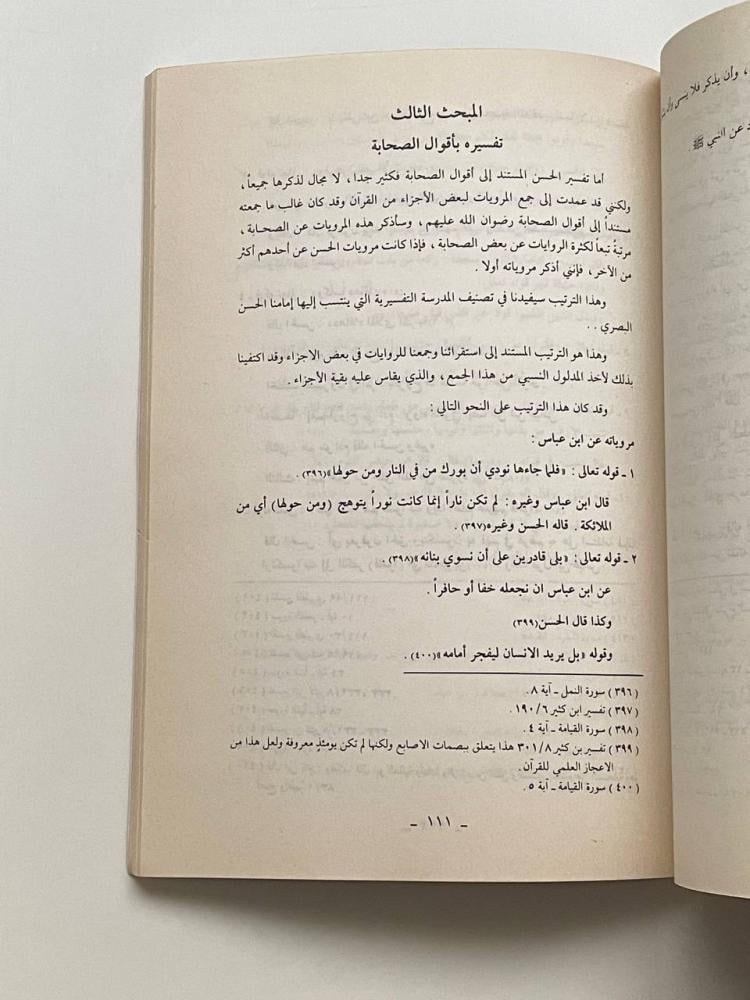 المبحث الثالث
تفسيره بأقوال الصحابة
أما تفسير الحسن المستند إلى أقوال الصحابة فكثير جدا، لا مجال لذكرها جميعاً،
ولكني قد عمدت إلى جمع المرويات لبعض الأجزاء من القرآن وقد كان غالب ما جمعته
مستنداً إلى أقوال الصحابة رضوان الله عليهم، وسأذكر هذه المرويات عن الصحابة،
مرتبةً تبعاً لكثرة الروايات عن بعض الصحابة، فإذا كانت مرويات الحسن عن أحدهم أكثر
من الآخر، فإنني أذكر مروياته أولا.
وهذا الترتيب سيفيدنا في تصنيف المدرسة التفسيرية التي ينتسب إليها إمامنا الحسن
البصري..
وهذا هو الترتيب المستند إلى استقرائنا وجمعنا للروايات في بعض الاجزاء وقد اكتفينا
بذلك لأخذ المدلول النسبي من هذا الجمع، والذي يقاس عليه بقية الأجزاء.
وقد كان هذا الترتيب على النحو التالي:
مروياته عن ابن عباس:
١ ـ قوله تعالى: «فلما جاءها نودي أن بورك من في النار ومن حولها»(٣٩٦).
قال ابن عباس وغيره: لم تكن ناراً إنما كانت نوراً يتوهج (ومن حولها) أي من
الملائكة. قاله الحسن وغيره(٣٩٧).
٢ ـ قوله تعالى: «بلى قادرين على أن نسوي بنانه»(٣٩٨).
عن ابن عباس ان نجعله خفا أو حافراً.
وكذا قال الحسن(٣٩٩)
وقوله «بل يريد الانسان ليفجر أمامه»(٤٠٠).
(٣٩٦) سورة النمل ـ آية ٨.
(٣٩٧) تفسير ابن كثير ١٩٠/٦.
(٣٩٨) سورة القيامة ـ آية ٤.
(٣٩٩) تفسير بن كثير ٣٠١/٨ هذا يتعلق ببصمات الاصابع ولكنها لم تكن يومئذٍ معروفة ولعل هذا من
الاعجاز العلمي للقرآن.
(٤٠٠) سورة القيامة ـ آية ٥.
ـ ١١١ ـ
، وأن يذكر فلا ينسى وأن
عن النبي ﷺ.